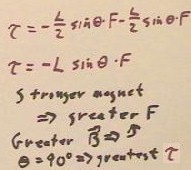 τ = - L/2 sin θ · F - L/2 sin θ · F
τ = - L sin θ · F
Stronger magnet
⇒ greater F
Greater B⃗ ⇒
θ = 90° ⇒ greatest τ